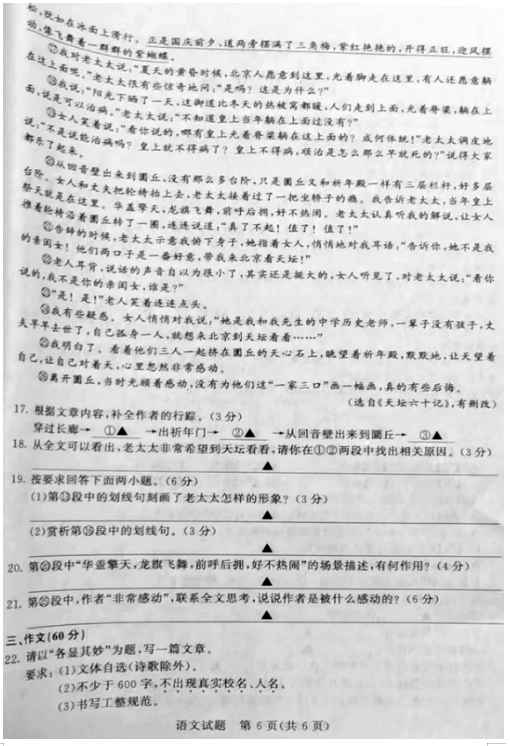 松,恍如在冰面上滑行。正是国庆前夕,道两旁摆满了三角梅,紫红艳艳的,开得正旺,迎风摆
动,像飞舞着一群群的紫蝴蝶。
⑰我对老太太说:“夏天的黄昏时候,北京人愿意到这里,光着脚走在这里,有人还愿意躺
在这上面呢。”老太太很有些惊奇地问:“是吗?这是为什么?”
⑱我说:“阳光下晒了一天,这御道比冬天的热被窝都暖,人们走到上面,光着脊梁,躺在上
面,说是可以治病。”老太太说:“不知道皇上当年躺在上面过没有?”
⑲女人笑着说:“看你说的,哪有皇上光着脊梁躺在这上面的?成何体统!”老太太调皮地
说:“不是说能治病吗?皇上就不得病了?皇上不得病,顺治是怎么那么早就死的?”说得大家
都乐了起来。
⑳从回音壁出来到圜丘,没有那么多台阶,只是圜丘又和祈年殿一样有三层栏杆,好多层
台阶。女人和丈夫把轮椅抬上去,老太太接着过了一把坐轿子的瘾。我告诉老太太,当年皇上
祭天就是在这里。华盖擎天,龙旗飞舞,前呼后拥,好不热闹。老太太认真听我的解说,让女人
推着轮椅沿着圜丘转了一圈,连连说道:“真了不起!值了!值了!”
㉑告辞的时候,老太太示意我俯下身子,她指着女人,悄悄地对我耳语:“告诉你,她不是我
的亲闺女!他们两口子是一番好意,带我来北京看天坛!”
㉒老人耳背,说话的声音自以为很小了,其实还是挺大的,女人听见了,对老太太说:“看你
说的,我不是你的亲闺女,谁是?”
㉓“是!是!”老人笑着连连点头。
㉔我有些疑惑。女人悄悄对我说:“她是我和我先生的中学历史老师,一辈子没有孩子,丈
夫早早去世了,自己孤身一人,就想来北京到天坛看看……”
㉕我明白了。看着他们三人一起挤在圜丘的天心石上,眺望着祈年殿,默默地,让天望着
自己,让自己对着天,心里忽然非常感动。
㉖离开圜丘,当时光顾着感动,没有为他们这“一家三口”画一幅画,真的有些后悔。
(选自《天坛六十记》,有删改)
17. 根据文章内容,补全作者的行踪。(3分)
穿过长廊→ ①▲ →出祈年门→ ②▲ →从回音壁出来到圜丘→ ③▲
18. 从全文可以看出,老太太非常希望到天坛看看,请你在①②两段中找出相关原因。(3分)
▲
19. 按要求回答下面两小题。(6分)
(1)第⑬段中的划线句刻画了老太太怎样的形象?(3分)
▲
(2)赏析第⑯段中的划线句。(3分)
▲
20. 第⑳段中“华盖擎天,龙旗飞舞,前呼后拥,好不热闹”的场景描述,有何作用?(4分)
▲
21. 第㉕段中,作者“非常感动”,联系全文思考,说说作者是被什么感动的?(6分)
▲
三、作文(60分)
22. 请以“各显其妙”为题,写一篇文章。
要求:(1)文体自选(诗歌除外)。
(2)不少于600字,不出现真实校名、人名。
(3)书写工整规范。
语文试题 第6页(共6页)